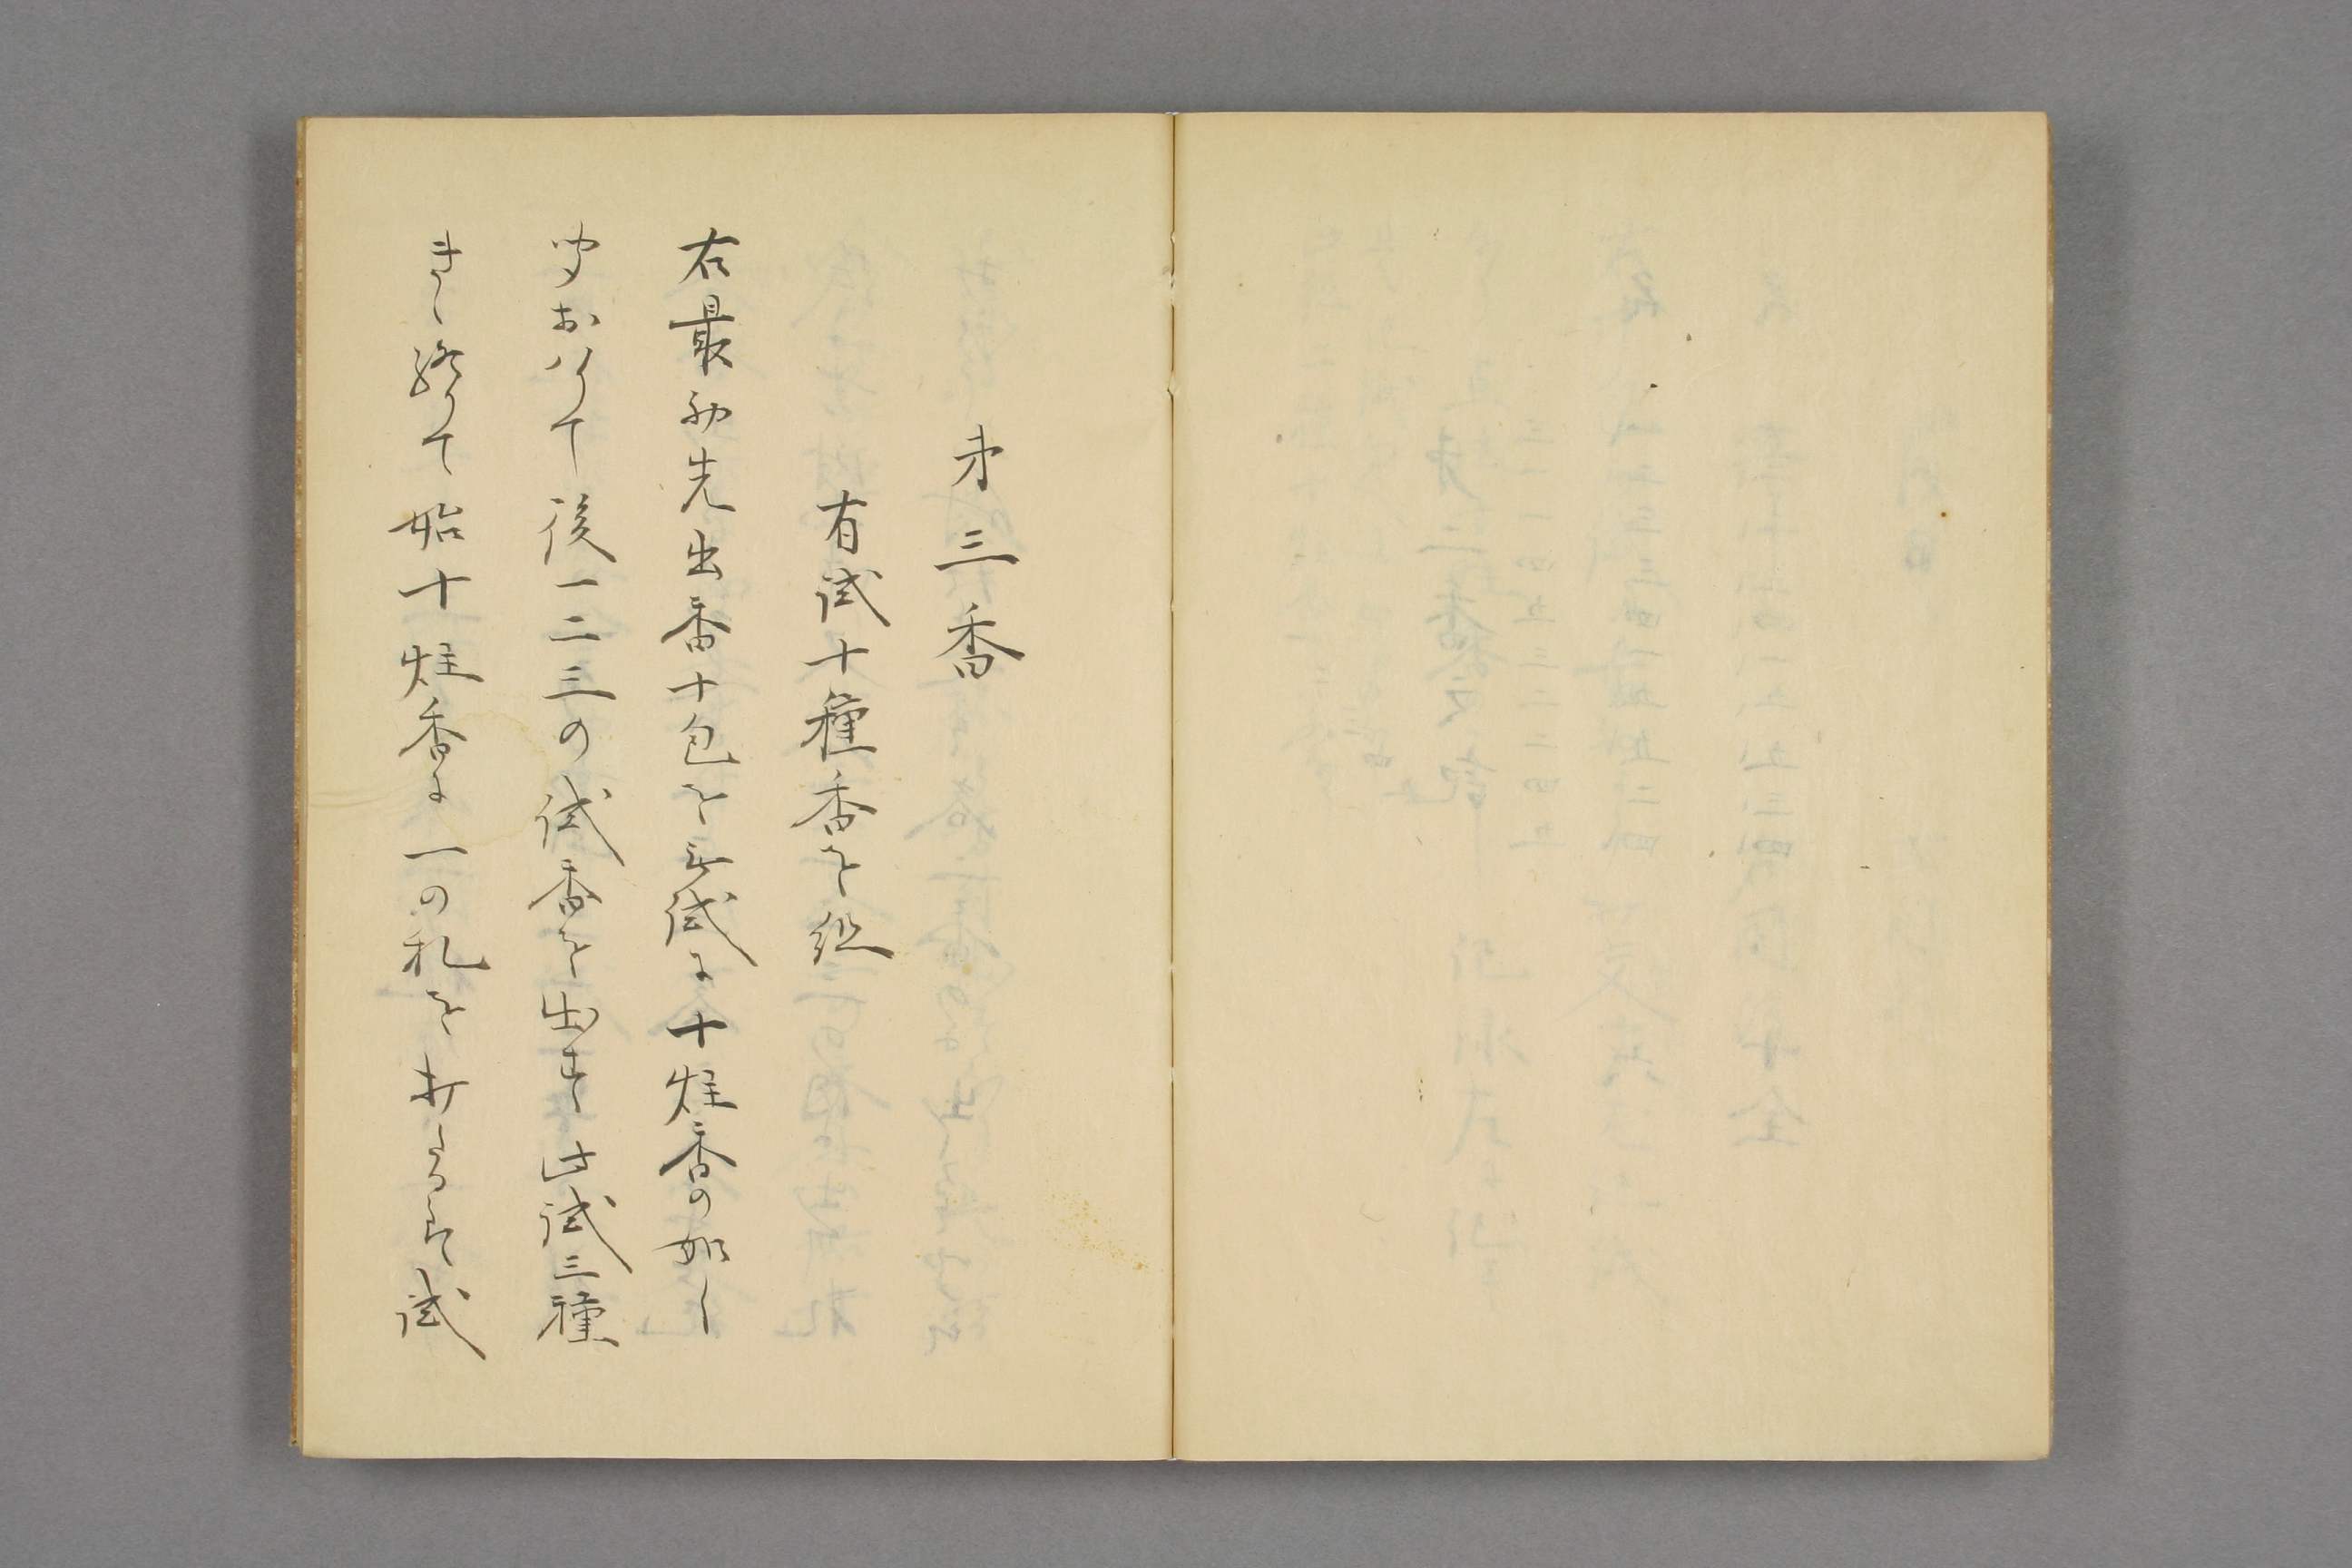 才三香
有試十種香を組
右最初先出香十包を無試に十炷香の如し
聞おはりて後一二三の試香を出す此試三種
きゝ終りて始十炷香に一の札を打たるは試